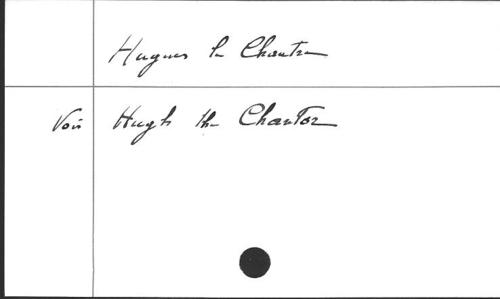 Hugues le Chantre
Voir Hugh the Chantor